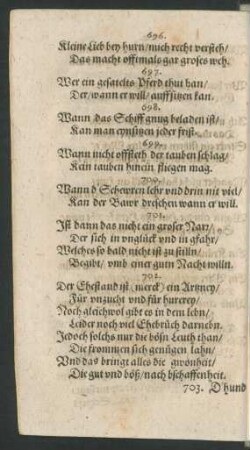 696.
Kleine Lieb bey hurn/ mich recht versteh/
Das macht offtmals gar groses weh.
697.
Wer ein gesatelts Pferd thut han/
Der/ wann er will/ auffsitzen kan.
698.
Wann das Schiff gnug beladen ist/
Kan man eynsitzen jeder frist.
699.
Wann nicht offsteth der tauben schlag/
Kein tauben hinein fliegen mag.
700.
Wann d'Schewren lehr vnd drin nit viel/
Kan der Bawr dreschen wann er will.
701.
Ist dann das nicht ein groser Narr/
Der sich in vnglück vnd in gfahr/
Welches so bald nicht ist zu stilln/
Begibt/ vmb einer gutn Nacht willn.
702.
Der Ehestand ist (merck) ein Artzney/
Für vnzucht vnd für hurerey/
Noch gleichwol gibt es in dem lebn/
Leider noch viel Ehebrüch darnebn.
Jedoch solchs nur die bösn Leuth than/
Die frommen sich genügen lahn/
Vnd das bringt alles die gwonheit/
Die gut vnd böß/ nach bschaffenheit.
703. D'hund